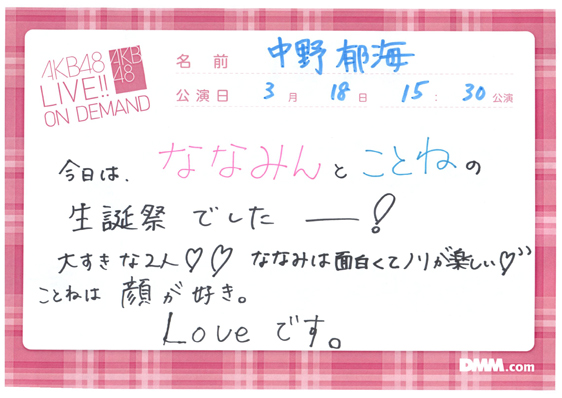 AKB48
LIVE!!
ON DEMAND
AKB
48
名 前 中野郁海
公演日 3月 18日 15:30公演
今日は、ななみんとことねの
生誕祭でしたー!
大すきな2人♡♡ ななみは面白くてノリが楽しい♡〃
ことねは顔が好き。
Loveです。
DMM.com